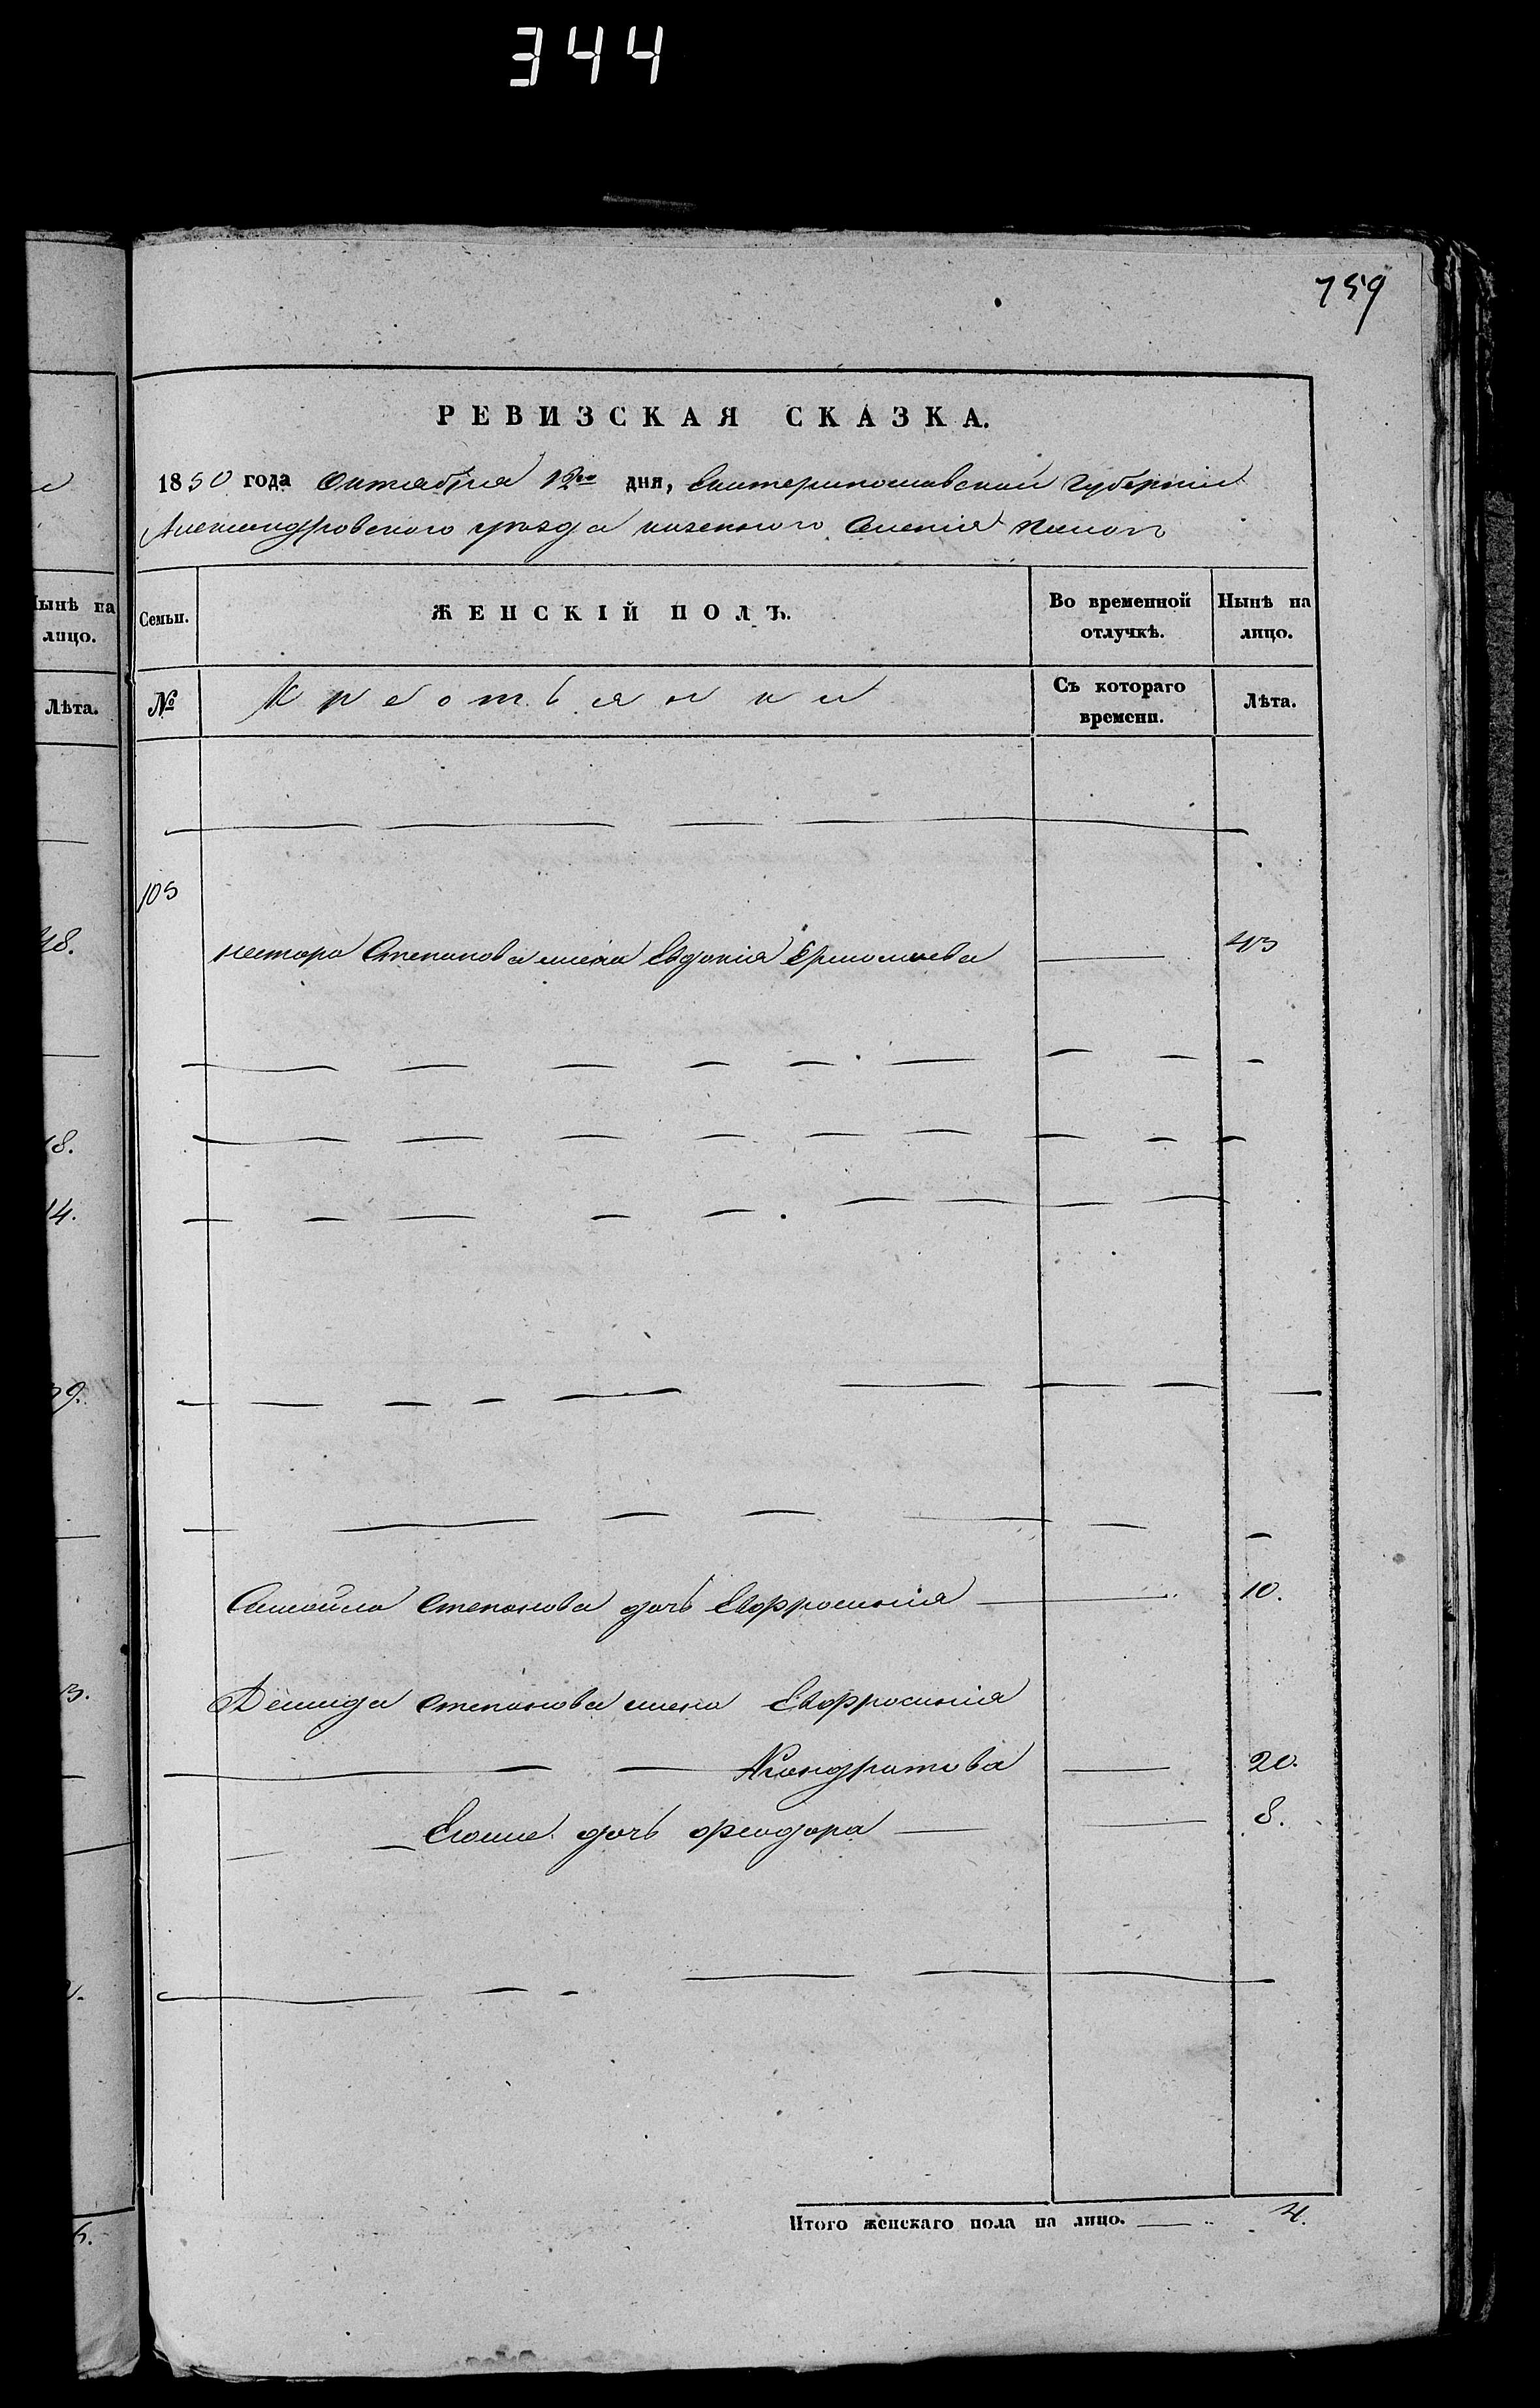 344
759
РЕВИЗСКАЯ СКАЗКА.
1850 года Октября 12го дня, Екатеринославской Губернии
Александровского уезда казенного Селенія
Семьи.
ЖЕНСКІЙ ПОЛЪ.
Во временной отлучкѣ.
Нынѣ на лицо.
№
Крестьянки
Съ котораго времени.
Лѣта.
105
Нестора Степанова жена Евдокія Ермолаева 43
Самойла Степанова дочь Евфросинія 10.
Демида Степанова жена Евфросинія
Кондратова 20.
Его дочь Феодора 8.
Итого женскаго пола на лицо. 4.
Нынѣ на
лицо.
Лѣта.
48.
18.
14.
39.